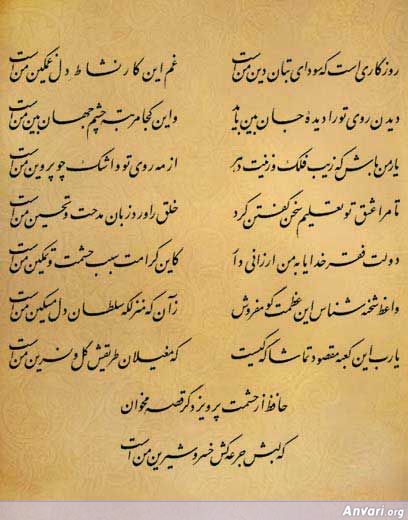 روزگاریست که سودای بتان دین من است غم این کار نشاط دل غمگین من است
دیدن روی تو را دیدهٔ جان بین باید وین کجا مرتبهٔ چشم جهان بین من است
یار من باش که زیب فلک و زینت دهر از مه روی تو و اشک چو پروین من است
تا مرا عشق تو تعلیم سخن گفتن کرد خلق را ورد زبان مدحت و تحسین من است
دولت فقر خدایا به من ارزانی دار کاین کرامت سبب حشمت و تمکین من است
واعظ شحنه شناس این عظمت گو مفروش زآن که منزلگه سلطان دل مسکین من است
یا رب این کعبه مقصود تماشاگه کیست که مغیلان طریقش گل و نسرین من است
حافظ از حشمت پرویز دگر قصه مخوان
که لبش جرعه کش خسرو شیرین من است
Anvari.org